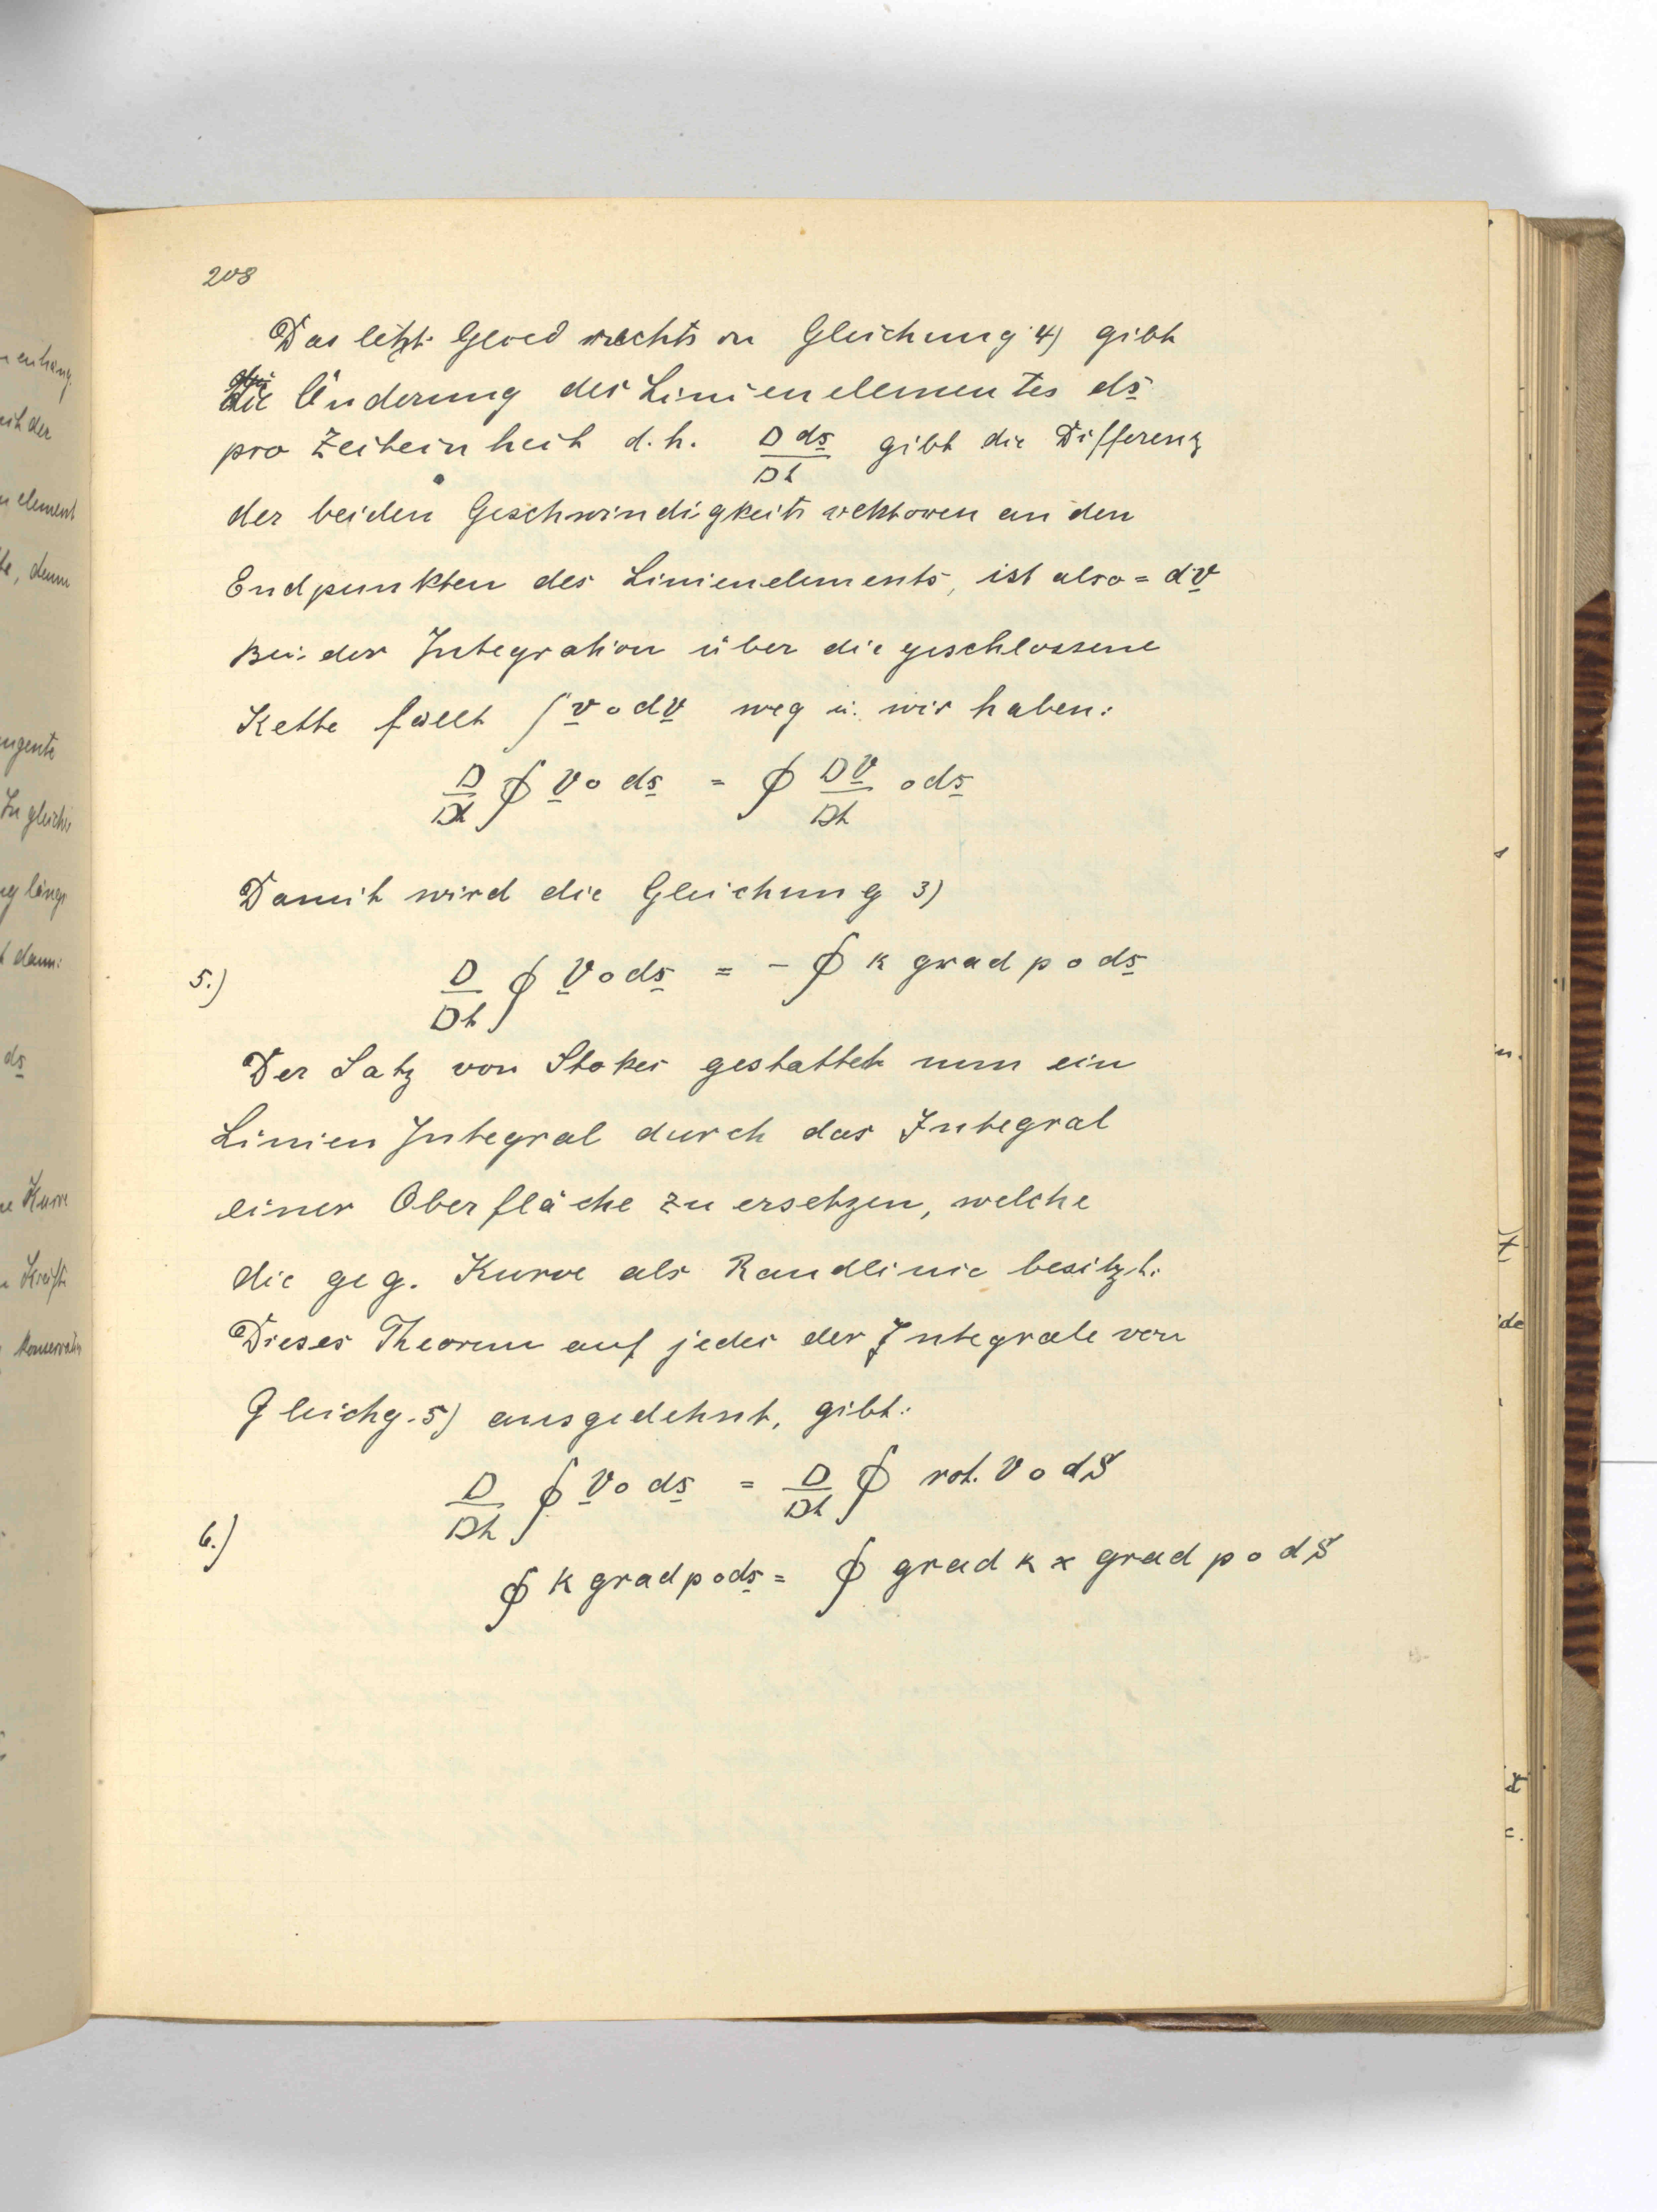 208
Das letzte Glied rechts in Gleichung 4) gibt
die Änderung des Linienelementes ds
pro Zeiteinheit d.h. D ds / Dt gibt die Differenz
der beiden Geschwindigkeitsvektoren an den
Endpunkten des Linienelements, ist also = dv
Bei der Integration über die geschlossene
Kette fällt ∫ v ∘ dv weg u. wir haben:
D/Dt ∮ v ∘ ds = ∮ Dv/Dt ∘ ds
Damit wird die Gleichung 3)
5.) D/Dt ∮ v ∘ ds = - ∮ k grad p ∘ ds
Der Satz von Stokes gestattet nun ein
Linien Integral durch das Integral
einer Oberfläche zu ersetzen, welche
die geg. Kurve als Randlinie besitzt.
Dieses Theorem auf jedes der Integrale von
Gleichg. 5) ausgedehnt, gibt:
D/Dt ∮ v ∘ ds = D/Dt ∮ rot. v ∘ dS
6.)
∮ k grad p ∘ ds = ∮ grad k × grad p ∘ dS
enhang
mit der
element
te, denn
ngente
In gleiche
ng längs
t dann:
ds
ne Kurve
n Kräfte
konservativ